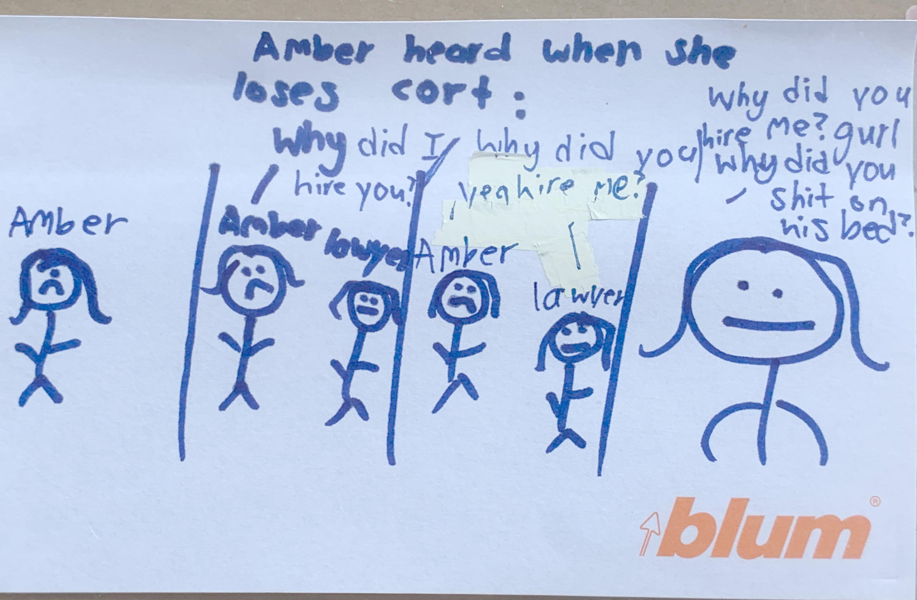 Amber heard when she
loses cort:
Amber
Why did I
hire you?
Amber
lawyer
Why did you
yea hire me?
Amber
lawyer
Why did you
hire me? gurl
Why did you
shit on
his bed?
blum®